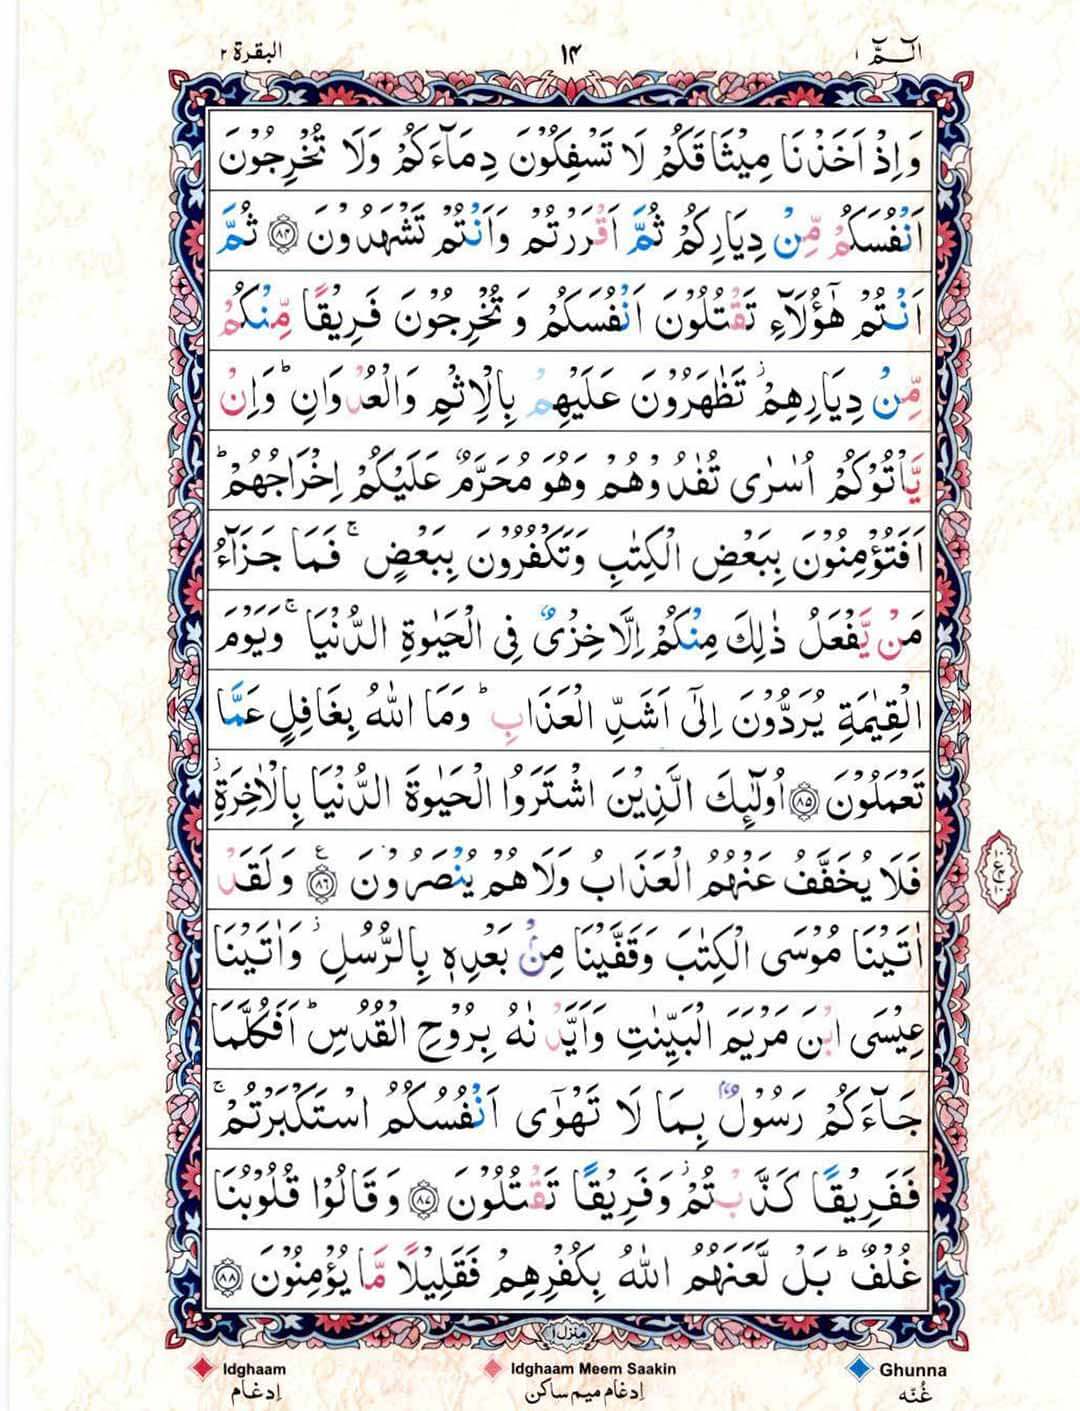 الٓمّٓ ۱ ۱۴ البقرة ۲
وَاِذْ اَخَذْنَا مِیْثَاقَكُمْ لَا تَسْفِكُوْنَ دِمَآءَكُمْ وَلَا تُخْرِجُوْنَ
اَنْفُسَكُمْ مِّنْ دِیَارِكُمْ ثُمَّ اَقْرَرْتُمْ وَاَنْتُمْ تَشْهَدُوْنَ ﴿۸۴﴾ ثُمَّ
اَنْتُمْ هٰۤؤُلَآءِ تَقْتُلُوْنَ اَنْفُسَكُمْ وَتُخْرِجُوْنَ فَرِیْقًا مِّنْكُمْ
مِّنْ دِیَارِهِمْ ؗ تَظٰهَرُوْنَ عَلَیْهِمْ بِالْاِثْمِ وَالْعُدْوَانِ ؕ وَاِنْ
یَّاْتُوْكُمْ اُسٰرٰی تُفٰدُوْهُمْ وَهُوَ مُحَرَّمٌ عَلَیْكُمْ اِخْرَاجُهُمْ ؕ
اَفَتُؤْمِنُوْنَ بِبَعْضِ الْكِتٰبِ وَتَكْفُرُوْنَ بِبَعْضٍ ۚ فَمَا جَزَآءُ
مَنْ یَّفْعَلُ ذٰلِكَ مِنْكُمْ اِلَّا خِزْیٌ فِی الْحَیٰوةِ الدُّنْیَا ۚ وَیَوْمَ
الْقِیٰمَةِ یُرَدُّوْنَ اِلٰۤی اَشَدِّ الْعَذَابِ ؕ وَمَا اللّٰهُ بِغَافِلٍ عَمَّا
تَعْمَلُوْنَ ﴿۸۵﴾ اُولٰٓئِكَ الَّذِیْنَ اشْتَرَوُا الْحَیٰوةَ الدُّنْیَا بِالْاٰخِرَةِ ؗ
فَلَا یُخَفَّفُ عَنْهُمُ الْعَذَابُ وَلَا هُمْ یُنْصَرُوْنَ ﴿۸۶﴾ ع وَلَقَدْ
اٰتَیْنَا مُوْسَی الْكِتٰبَ وَقَفَّیْنَا مِنْ بَعْدِهٖ بِالرُّسُلِ ؗ وَاٰتَیْنَا
عِیْسَی ابْنَ مَرْیَمَ الْبَیِّنٰتِ وَاَیَّدْنٰهُ بِرُوْحِ الْقُدُسِ ؕ اَفَكُلَّمَا
جَآءَكُمْ رَسُوْلٌ بِمَا لَا تَهْوٰۤی اَنْفُسُكُمُ اسْتَكْبَرْتُمْ ۚ
فَفَرِیْقًا كَذَّبْتُمْ ؗ وَفَرِیْقًا تَقْتُلُوْنَ ﴿۸۷﴾ وَقَالُوْا قُلُوْبُنَا
غُلْفٌ ؕ بَلْ لَّعَنَهُمُ اللّٰهُ بِكُفْرِهِمْ فَقَلِیْلًا مَّا یُؤْمِنُوْنَ ﴿۸۸﴾
منزل ۱
Idghaam Idghaam Meem Saakin Ghunna
اِدغام اِدغام میم ساکن غُنّه